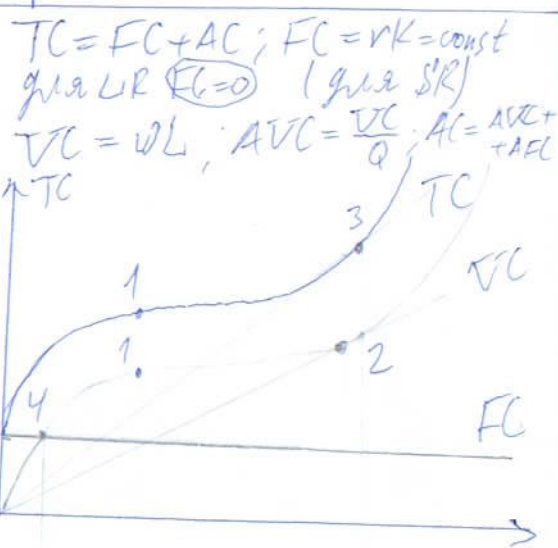 TC = FC + AC ; FC = rK = const
для LR FC=0 (для SR)
VC = wL ; AVC = VC/Q ; AC = AVC +
+ AFC
TC
TC
3
1
VC
1
2
4
FC